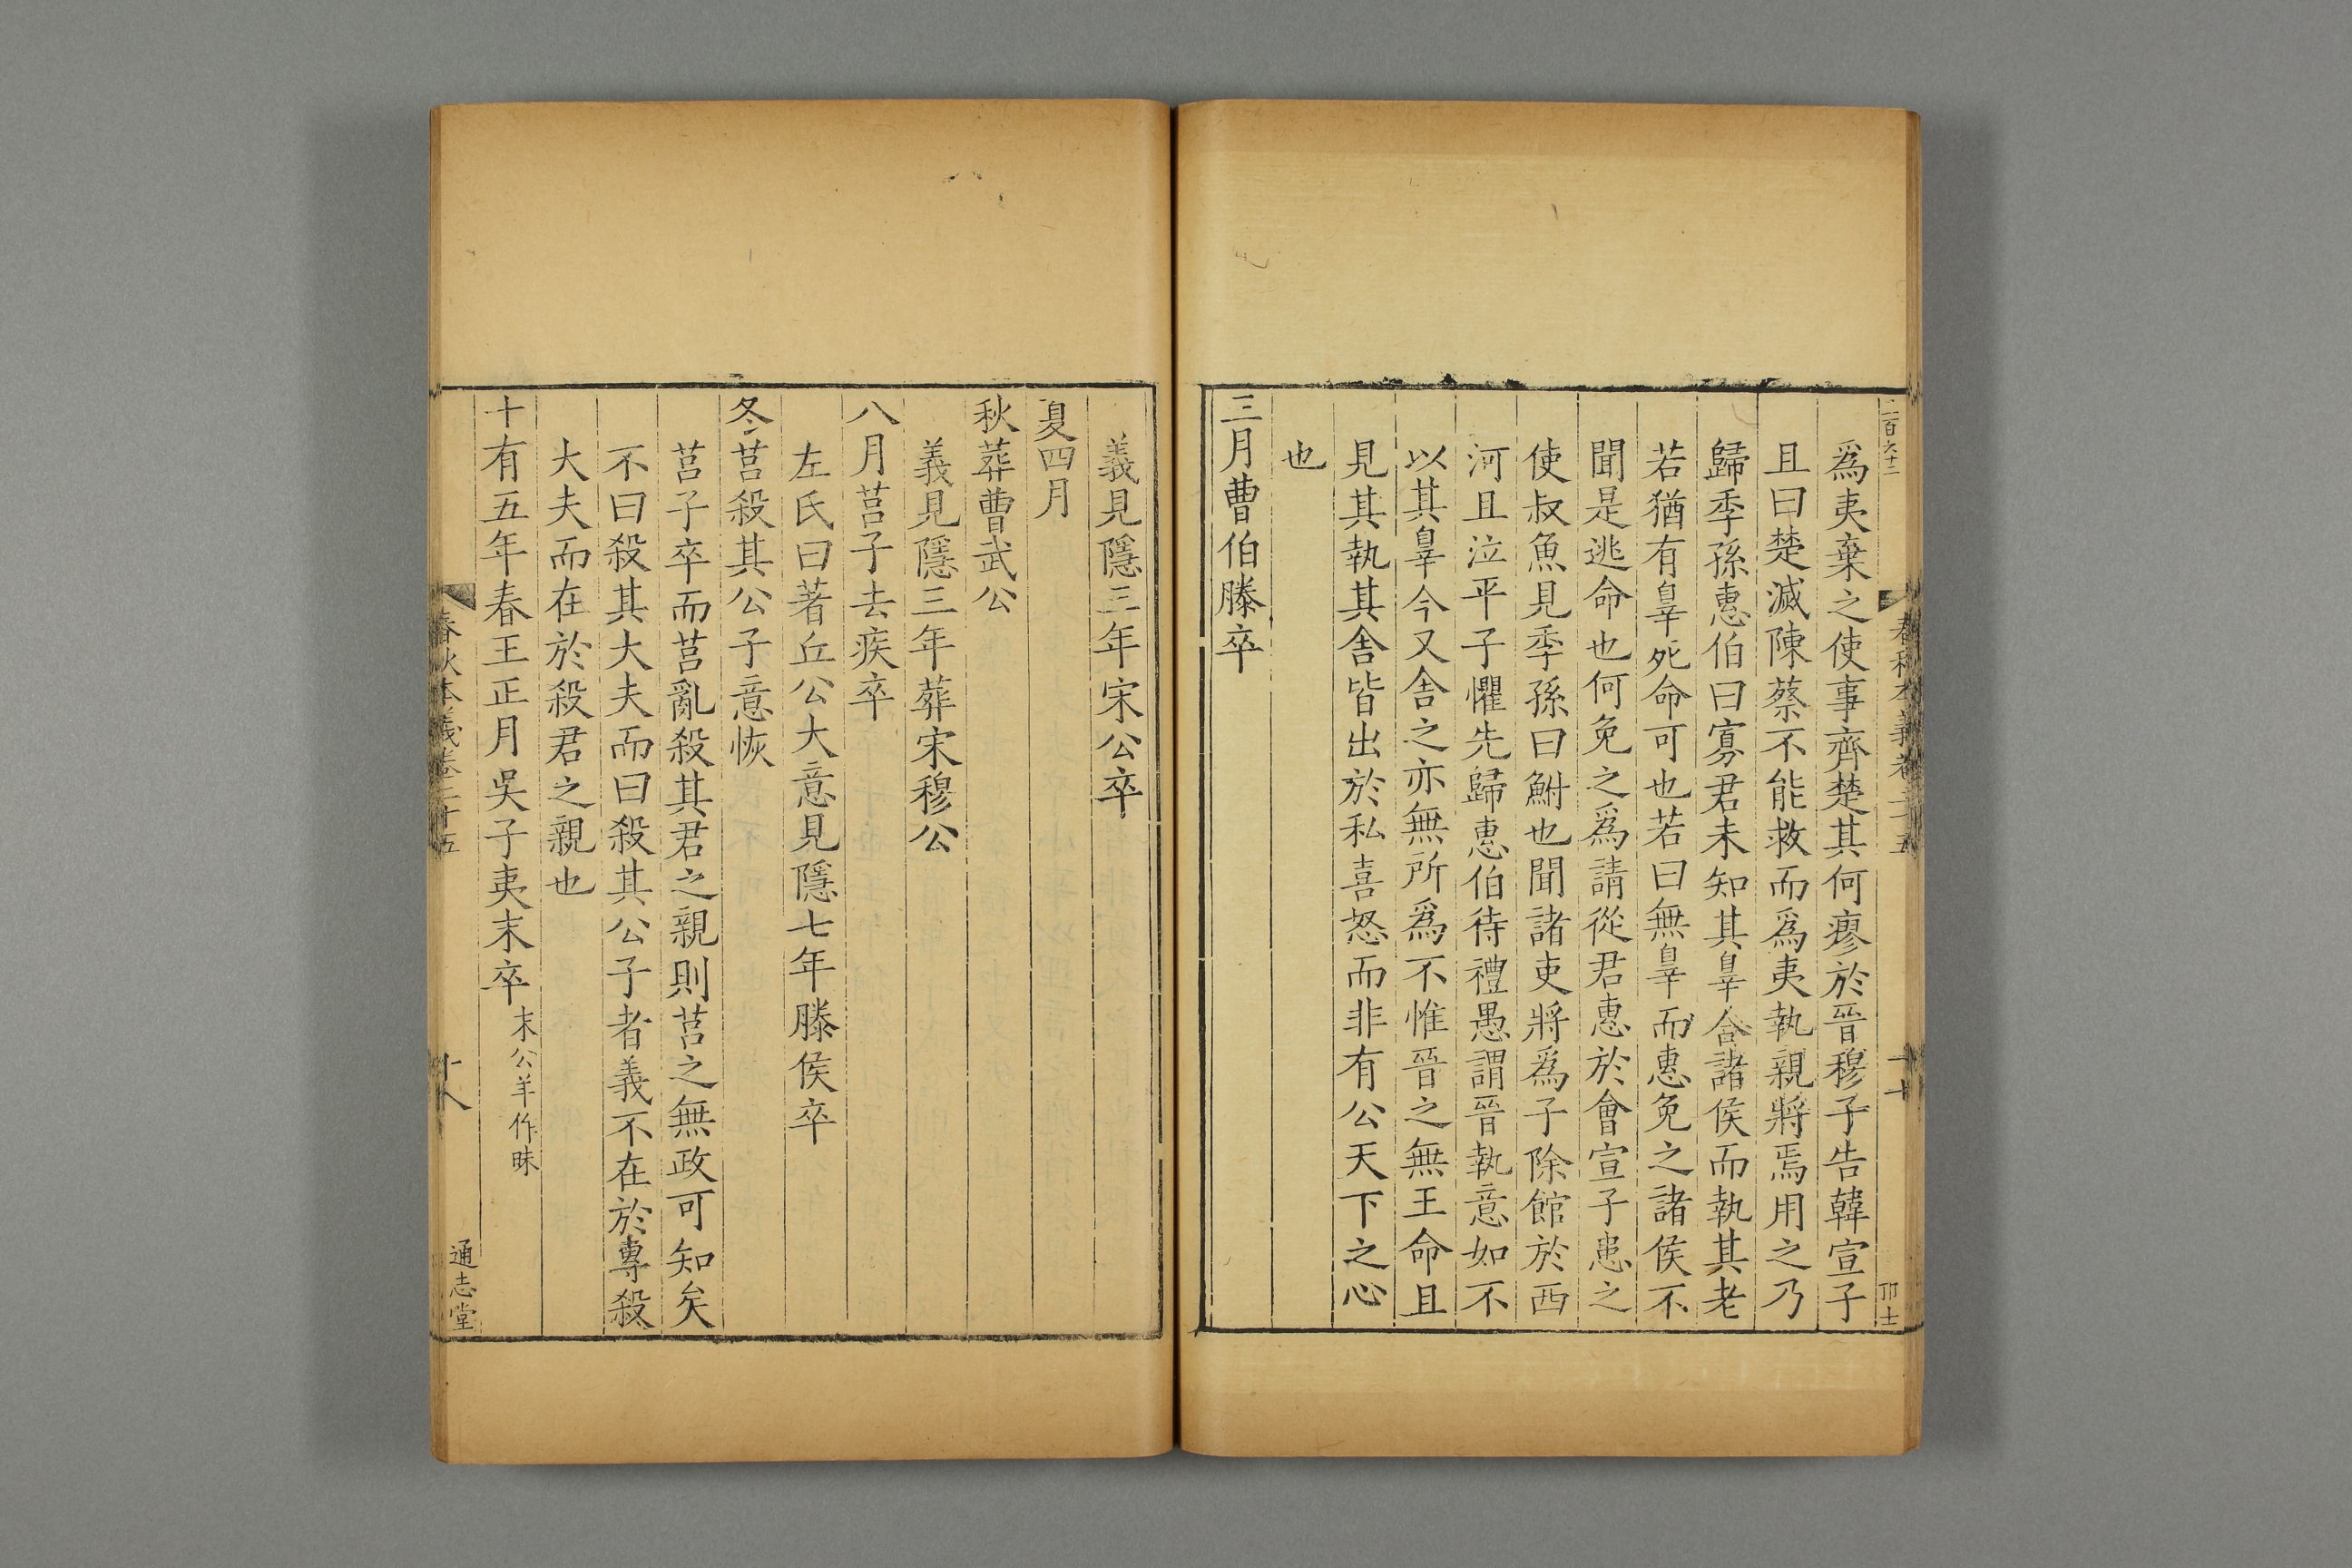 二百六十二
春秋本義卷二十五
十七
爲夷棄之使事齊楚其何瘳於晉穆子告韓宣子
且曰楚滅陳蔡不能救而爲夷執親將焉用之乃
歸季孫惠伯曰寡君未知其辠合諸侯而執其老
若猶有辠死命可也若曰無辠而惠免之諸侯不
聞是逃命也何免之爲請從君惠於會宣子患之
使叔魚見季孫曰鮒也聞諸吏將爲子除館於西
河且泣平子懼先歸惠伯待禮愚謂晉執意如不
以其辠今又舍之亦無所爲不惟晉之無王命且
見其執其舍皆出於私喜怒而非有公天下之心
也
三月曹伯滕卒
義見隱三年宋公卒
夏四月
秋葬曹武公
義見隱三年葬宋穆公
八月莒子去疾卒
左氏曰著丘公大意見隱七年滕侯卒
冬莒殺其公子意恢
莒子卒而莒亂殺其君之親則莒之無政可知矣
不曰殺其大夫而曰殺其公子者義不在於專殺
大夫而在於殺君之親也
十有五年春王正月吳子夷末卒末公羊作昧
春秋本義卷二十五
十八
通志堂